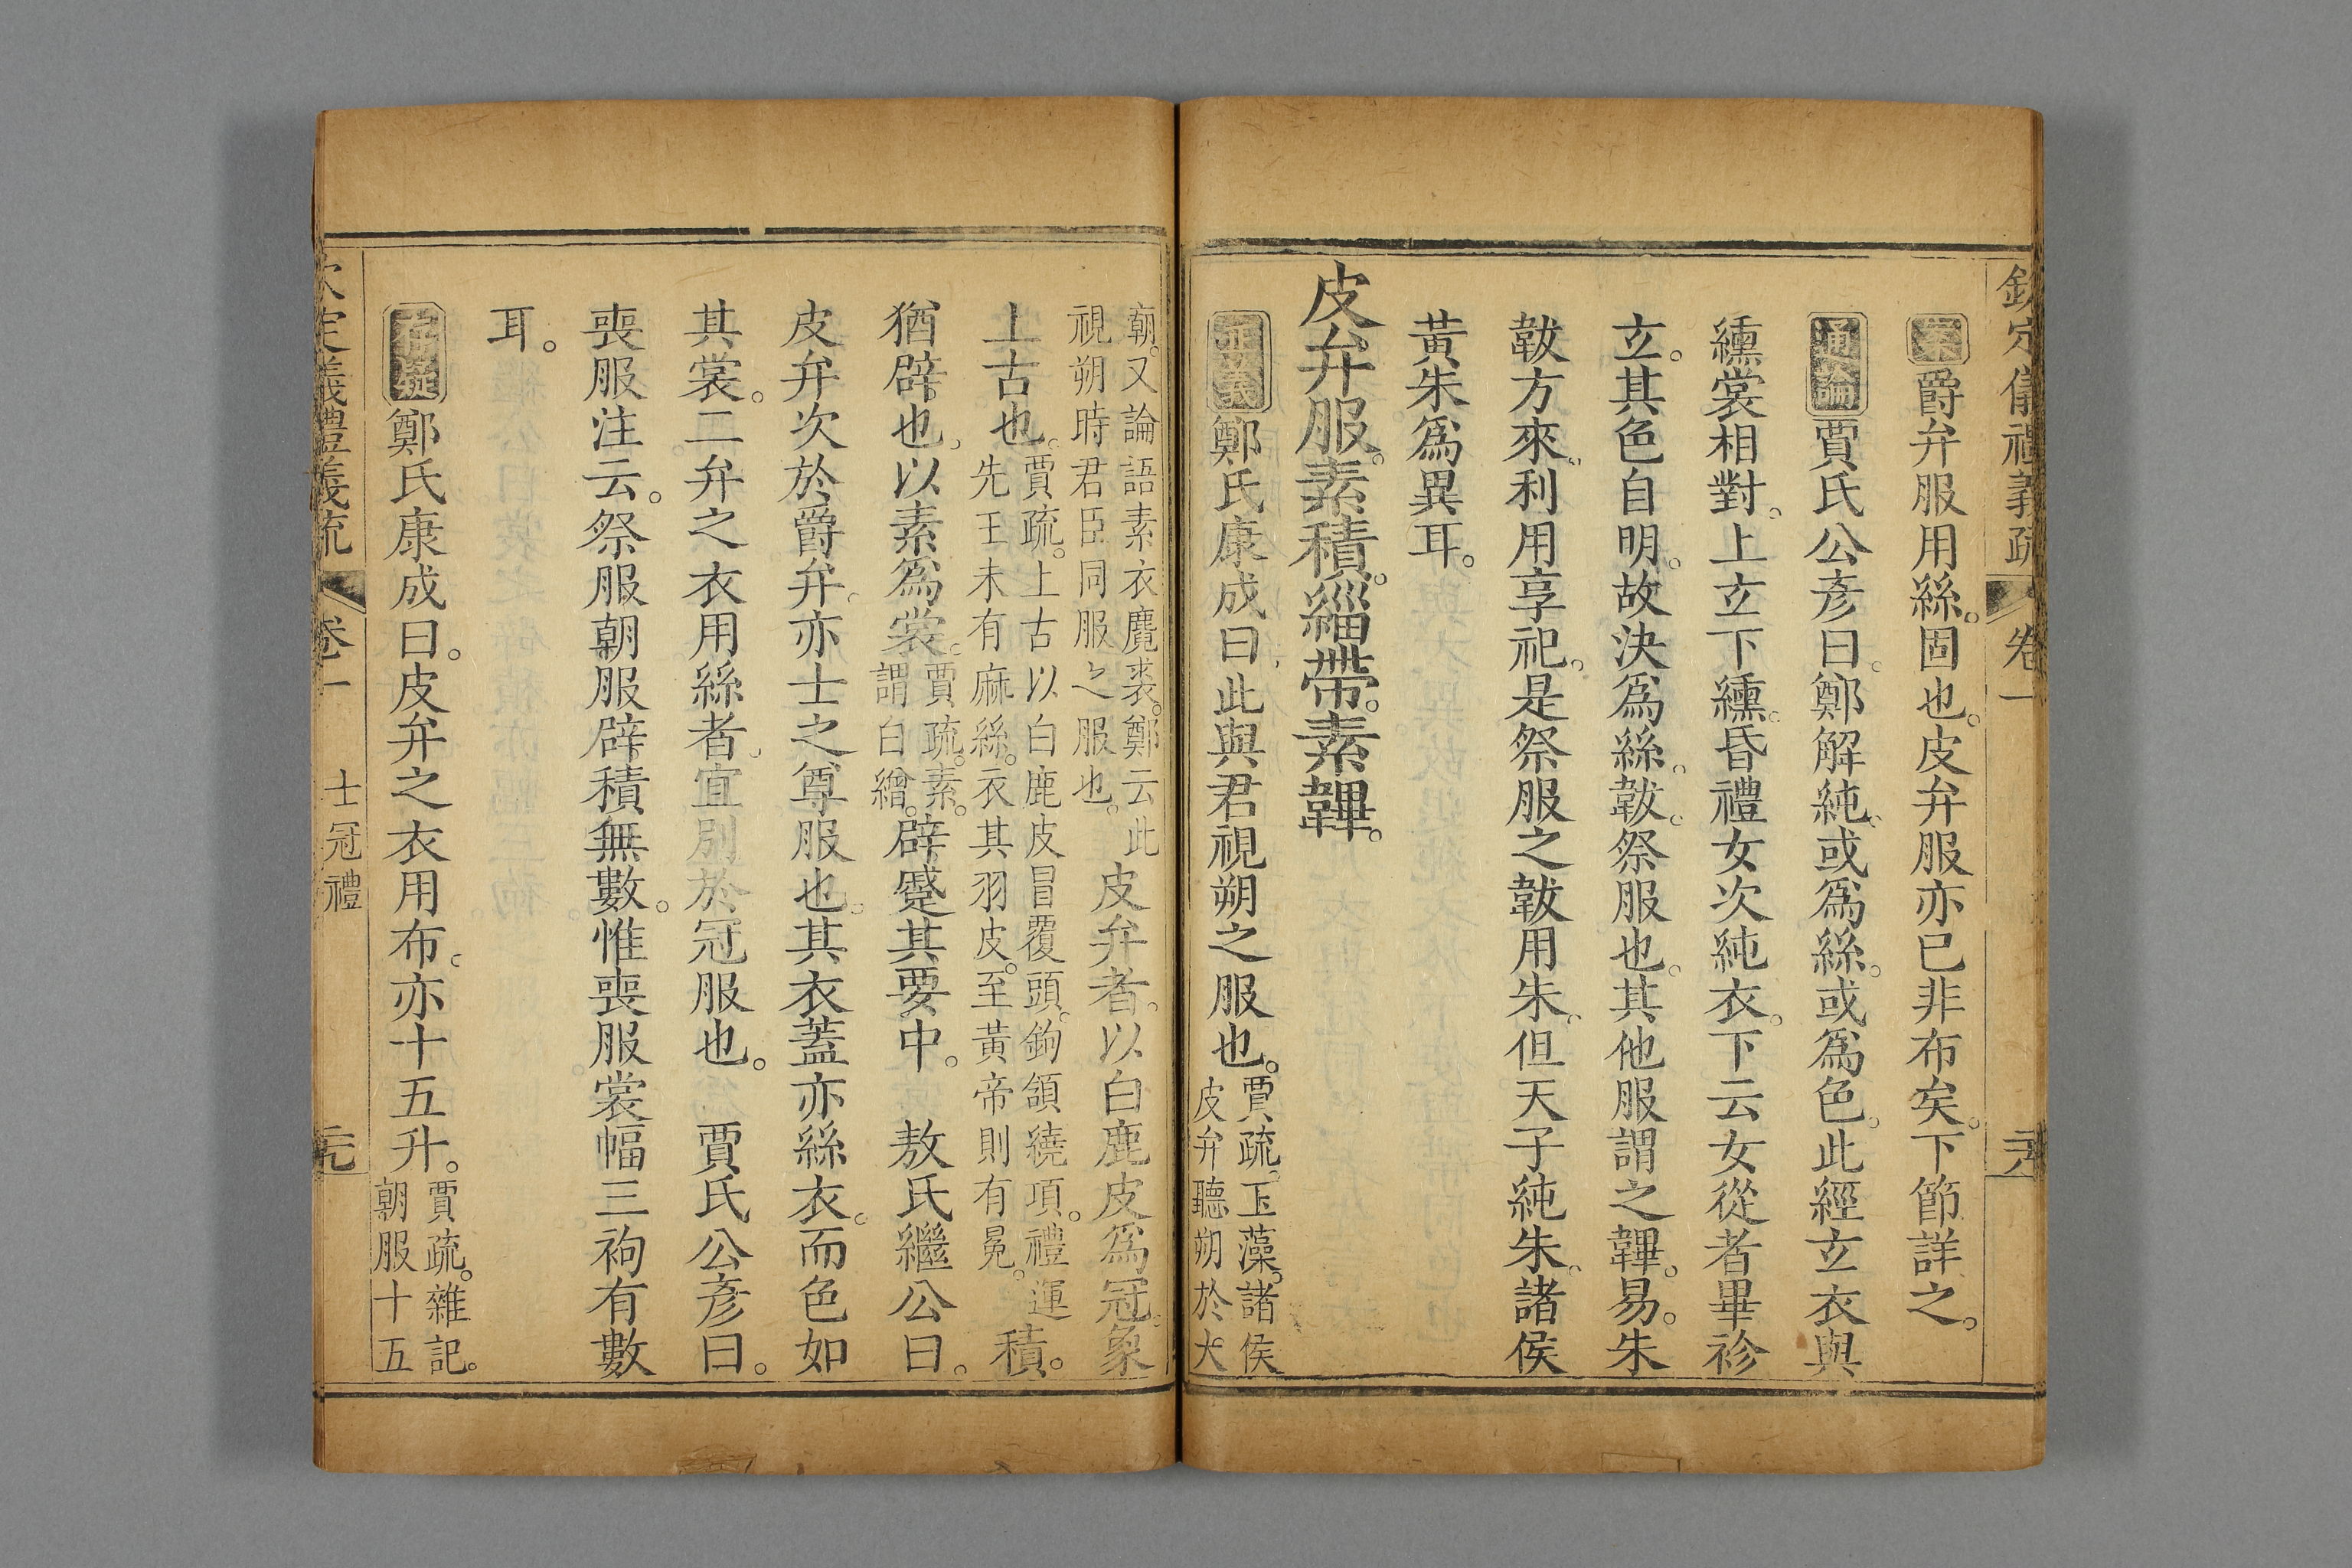 欽定儀禮義疏 卷一
案爵弁服用絲。固也。皮弁服亦已非布矣。下節詳之。
通論賈氏公彥曰。鄭解純。或爲絲。或爲色。此經玄衣與
纁裳相對。上玄下纁。昏禮女次純衣。下云女從者畢袗
玄。其色自明。故決爲絲。韍。祭服也。其他服謂之韠。易。朱
韍方來。利用享祀。是祭服之韍用朱。但天子純朱。諸侯
黃朱爲異耳。
皮弁服。素積。緇帶。素韠。
正義鄭氏康成曰。此與君視朔之服也。賈疏。玉藻。諸侯
皮弁聽朔於大
朝。又論語素衣麑裘。鄭云此
視朔時君臣同服之服也。皮弁者。以白鹿皮爲冠。象
上古也。賈疏。上古以白鹿皮冒覆頭。鉤頷繞項。禮運
先王未有麻絲。衣其羽皮。至黃帝則有冕。積。
猶辟也。以素爲裳。賈疏。素。
謂白繒。辟蹙其要中。 敖氏繼公曰。
皮弁次於爵弁。亦士之尊服也。其衣蓋亦絲衣。而色如
其裳。二弁之衣用絲者。宜別於冠服也。 賈氏公彥曰。
喪服注云。祭服朝服辟積無數。惟喪服裳幅三袧有數
耳。
存疑鄭氏康成曰。皮弁之衣用布。亦十五升。賈疏。雜記。
朝服十五
欽定儀禮義疏 卷一 士冠禮